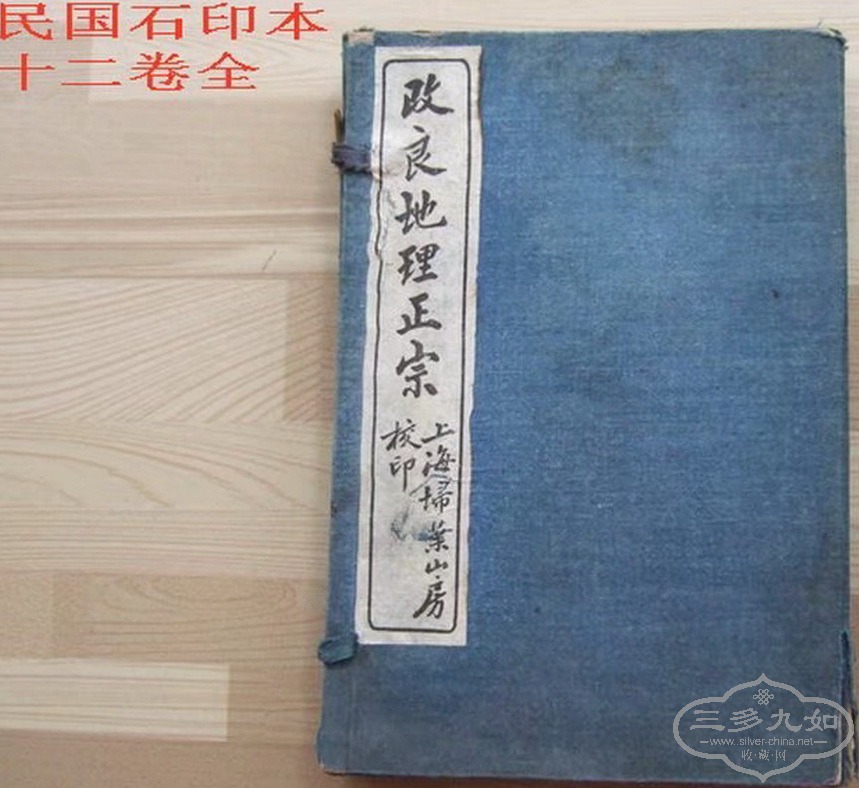 民国石印本
十二卷全
改良地理正宗
上海掃葉山房
校印
三多九如
www.silver-china.net
收·藏·网